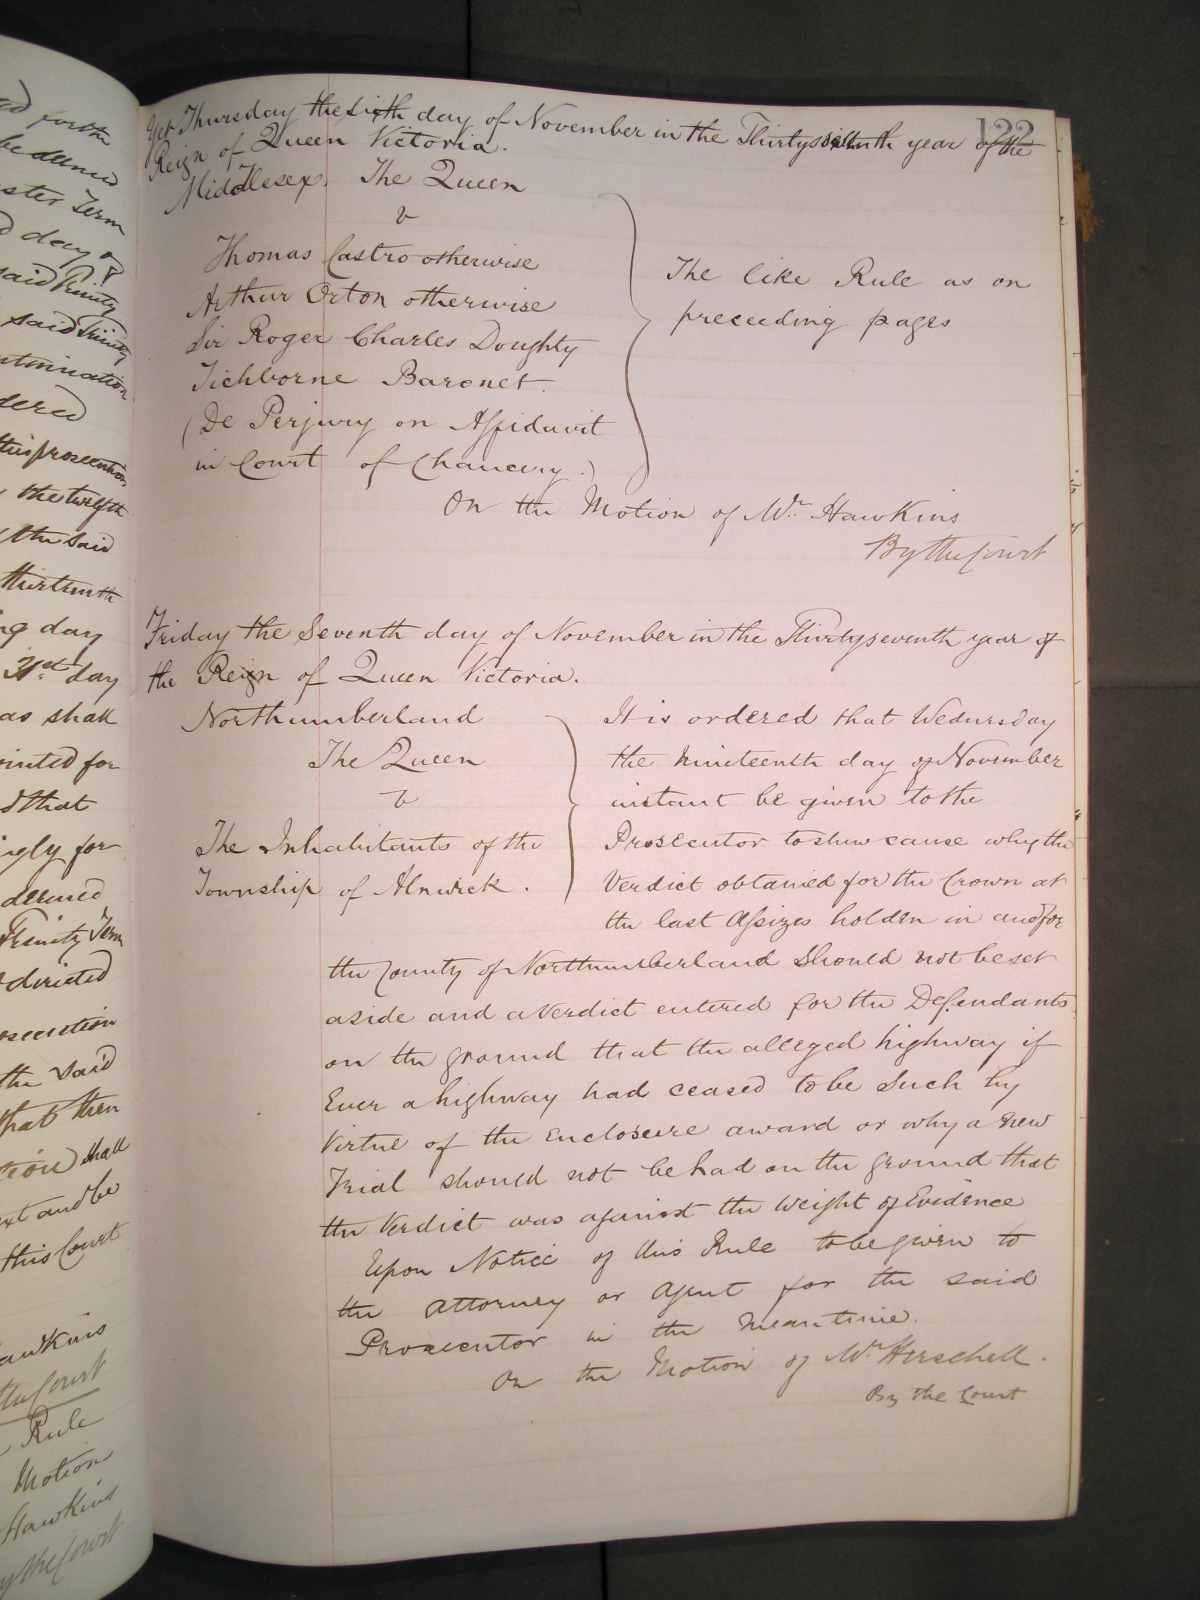 ed forth
be deemed
ster Term
d day of
said Trinity
said Trinity
ntinuation
dered
this prosecution
the twelfth
the said
thirteenth
ng day
31st day
as shall
ointed for
d that
ngly for
deemed
Trinity Term
directed
osecution
the said
that then
tion shall
ext and be
this Court
awkins
the Court
Rule
Motion
Hawkins
y the Court
122
Yet Thursday the sixth day of November in the Thirtyseventh year of the
Reign of Queen Victoria.
Middlesex. The Queen
v
Thomas Castro otherwise
Arthur Orton otherwise
Sir Roger Charles Doughty
Tichborne Baronet.
(De Perjury on Affidavit
in Court of Chancery.)
The like Rule as on
preceeding pages
On the Motion of Mr. Hawkins
By the Court
Friday the Seventh day of November in the Thirtyseventh year of
the Reign of Queen Victoria.
Northumberland
The Queen
v
The Inhabitants of the
Township of Alnwick.
It is ordered that Wednesday
the Nineteenth day of November
instant be given to the
Prosecutor to shew cause why the
Verdict obtained for the Crown at
the last Assizes holden in and for
the County of Northumberland should not be set
aside and a Verdict entered for the Defendants
on the ground that the alleged highway if
Ever a highway had ceased to be such by
Virtue of the Enclosure award or why a new
Trial should not be had on the ground that
the Verdict was against the Weight of Evidence
Upon Notice of this Rule to be given to
the Attorney or Agent for the said
Prosecutor in the Meantime.
On the Motion of Mr. Herschell.
By the Court